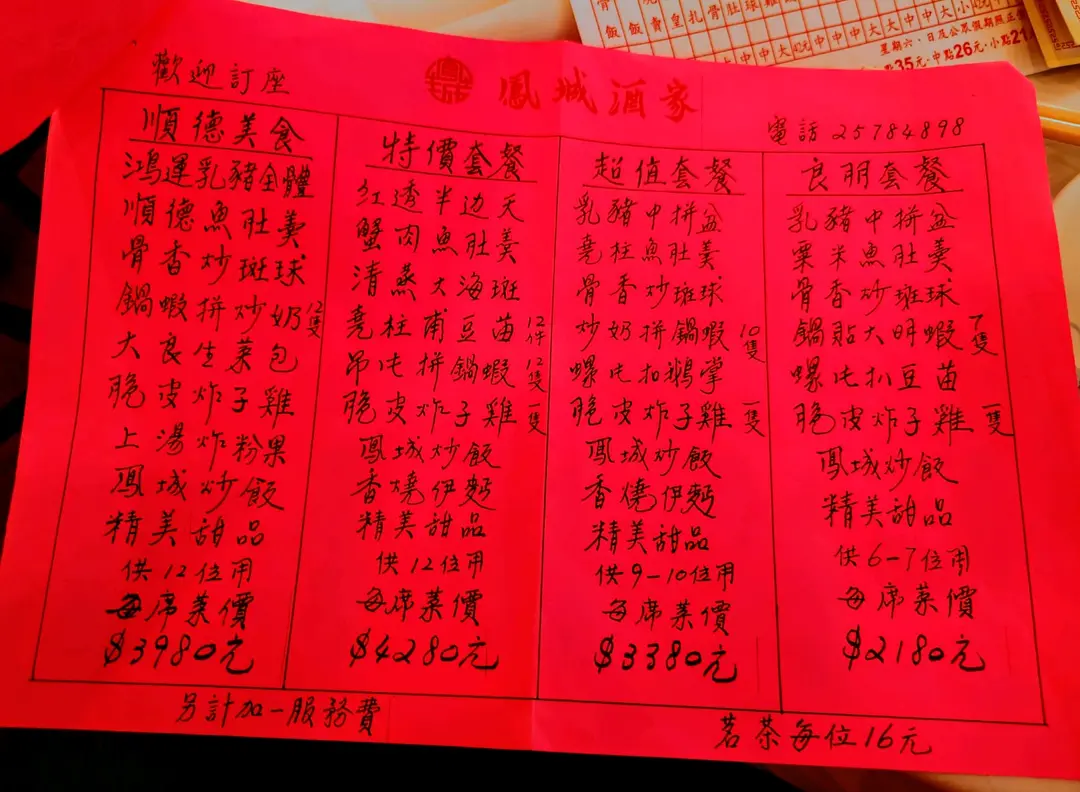 歡迎訂座
鳳城酒家
電話 25784898
順德美食
鴻運乳豬全體
順德魚肚羹
骨香炒斑球
鍋蝦拼炒奶 12隻
大良生菜包
脆皮炸子雞
上湯炸粉果
鳳城炒飯
精美甜品
供12位用
每席菜價
$3980元
特價套餐
紅透半边天
蟹肉魚肚羹
清蒸大海斑
堯柱甫豆苗 12件
吊片拼鍋蝦 12隻
脆皮炸子雞 一隻
鳳城炒飯
香燒伊麪
精美甜品
供12位用
每席菜價
$4280元
超值套餐
乳豬中拼盆
堯柱魚肚羹
骨香炒斑球
炒奶拼鍋蝦 10隻
螺片扣鵝掌
脆皮炸子雞 一隻
鳳城炒飯
香燒伊麪
精美甜品
供9-10位用
每席菜價
$3380元
良朋套餐
乳豬中拼盆
粟米魚肚羹
骨香炒斑球
鍋貼大明蝦 7隻
螺片扒豆苗
脆皮炸子雞 一隻
鳳城炒飯
精美甜品
供6-7位用
每席菜價
$2180元
另計加一服務費
茗茶每位16元
星期六、日及公眾假期照正
35元·中點26元·小點21